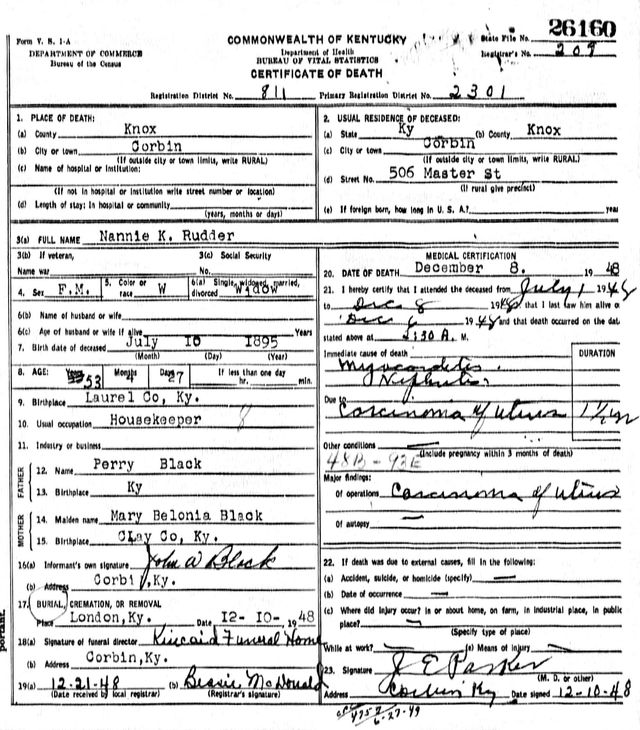 26160
Form V. S. 1-A
DEPARTMENT OF COMMERCE
Bureau of the Census
COMMONWEALTH OF KENTUCKY
Department of Health
BUREAU OF VITAL STATISTICS
CERTIFICATE OF DEATH
State File No.
Registrar's No. 209
Registration District No. 811 Primary Registration District No. 2301
1. PLACE OF DEATH:
(a) County Knox
(b) City or town Corbin
(If outside city or town limits, write RURAL)
(c) Name of hospital or institution:
(If not in hospital or institution write street number or location)
(d) Length of stay: In hospital or community
(years, months or days)
2. USUAL RESIDENCE OF DECEASED:
(a) State Ky (b) County Knox
(c) City or town Corbin
(If outside city or town limits, write RURAL)
(d) Street No. 506 Master St
(If rural give precinct)
(e) If foreign born, how long in U. S. A.? year
3(a) FULL NAME Nannie K. Rudder
3(b) If veteran,
Name war
3(c) Social Security
No.
4. Sex F.M. 5. Color or race W 6(a) Single, widowed, married, divorced Widow
6(b) Name of husband or wife
6(c) Age of husband or wife if alive Years
7. Birth date of deceased July 10 1895
(Month) (Day) (Year)
8. AGE: Years 53 Months 4 Days 27 If less than one day hr. min.
9. Birthplace Laurel Co, Ky.
10. Usual occupation Housekeeper
11. Industry or business
FATHER
12. Name Perry Black
13. Birthplace Ky
MOTHER
14. Maiden name Mary Belonia Black
15. Birthplace CLay Co, Ky.
16(a) Informant's own signature John W Black
(b) Address Corbin,Ky.
17. BURIAL, CREMATION, OR REMOVAL
Place London,Ky. Date 12- 10- 1948
18(a) Signature of funeral director Kincaid Funeral Home
(b) Address Corbin,Ky.
19(a) 12-21-48 (b) Bessie McDonald
(Date received by local registrar) (Registrar's signature)
MEDICAL CERTIFICATION
20. DATE OF DEATH December 8. 1948
21. I hereby certify that I attended the deceased from July 1 1948
to Dec 8 1948 that I last saw him alive o
Dec 6 1948 and that death occurred on the dat
stated above at 2:30 A. M.
Immediate cause of death DURATION
Myocarditis
Nephritis
Due to
Carcinoma of uterus 1 1/2 yr
Other conditions
(Include pregnancy within 3 months of death)
48B-92E
Major findings:
Of operations Carcinoma of uterus
Of autopsy
22. If death was due to external causes, fill in the following:
(a) Accident, suicide, or homicide (specify)
(b) Date of occurrence
(c) Where did injury occur? in or about home, on farm, in industrial place, in public
place?
(Specify type of place)
While at work? (e) Means of injury
23. Signature J E Parker
(M. D. or other)
Address Corbin Ky Date signed 12-10-48
6-27-49
portant.